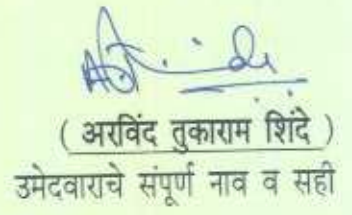 ( अरविंद तुकाराम शिंदे )
उमेदवाराचे संपूर्ण नाव व सही